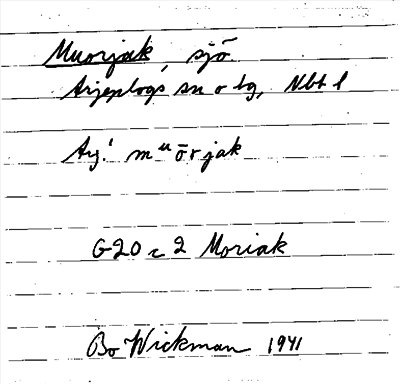 Muorjak, sjö
Arjeplogs sn o tg, Nbt l
Arj. mᵘōrjak
G20 c 2 Moriak
Bo Wickman 1941